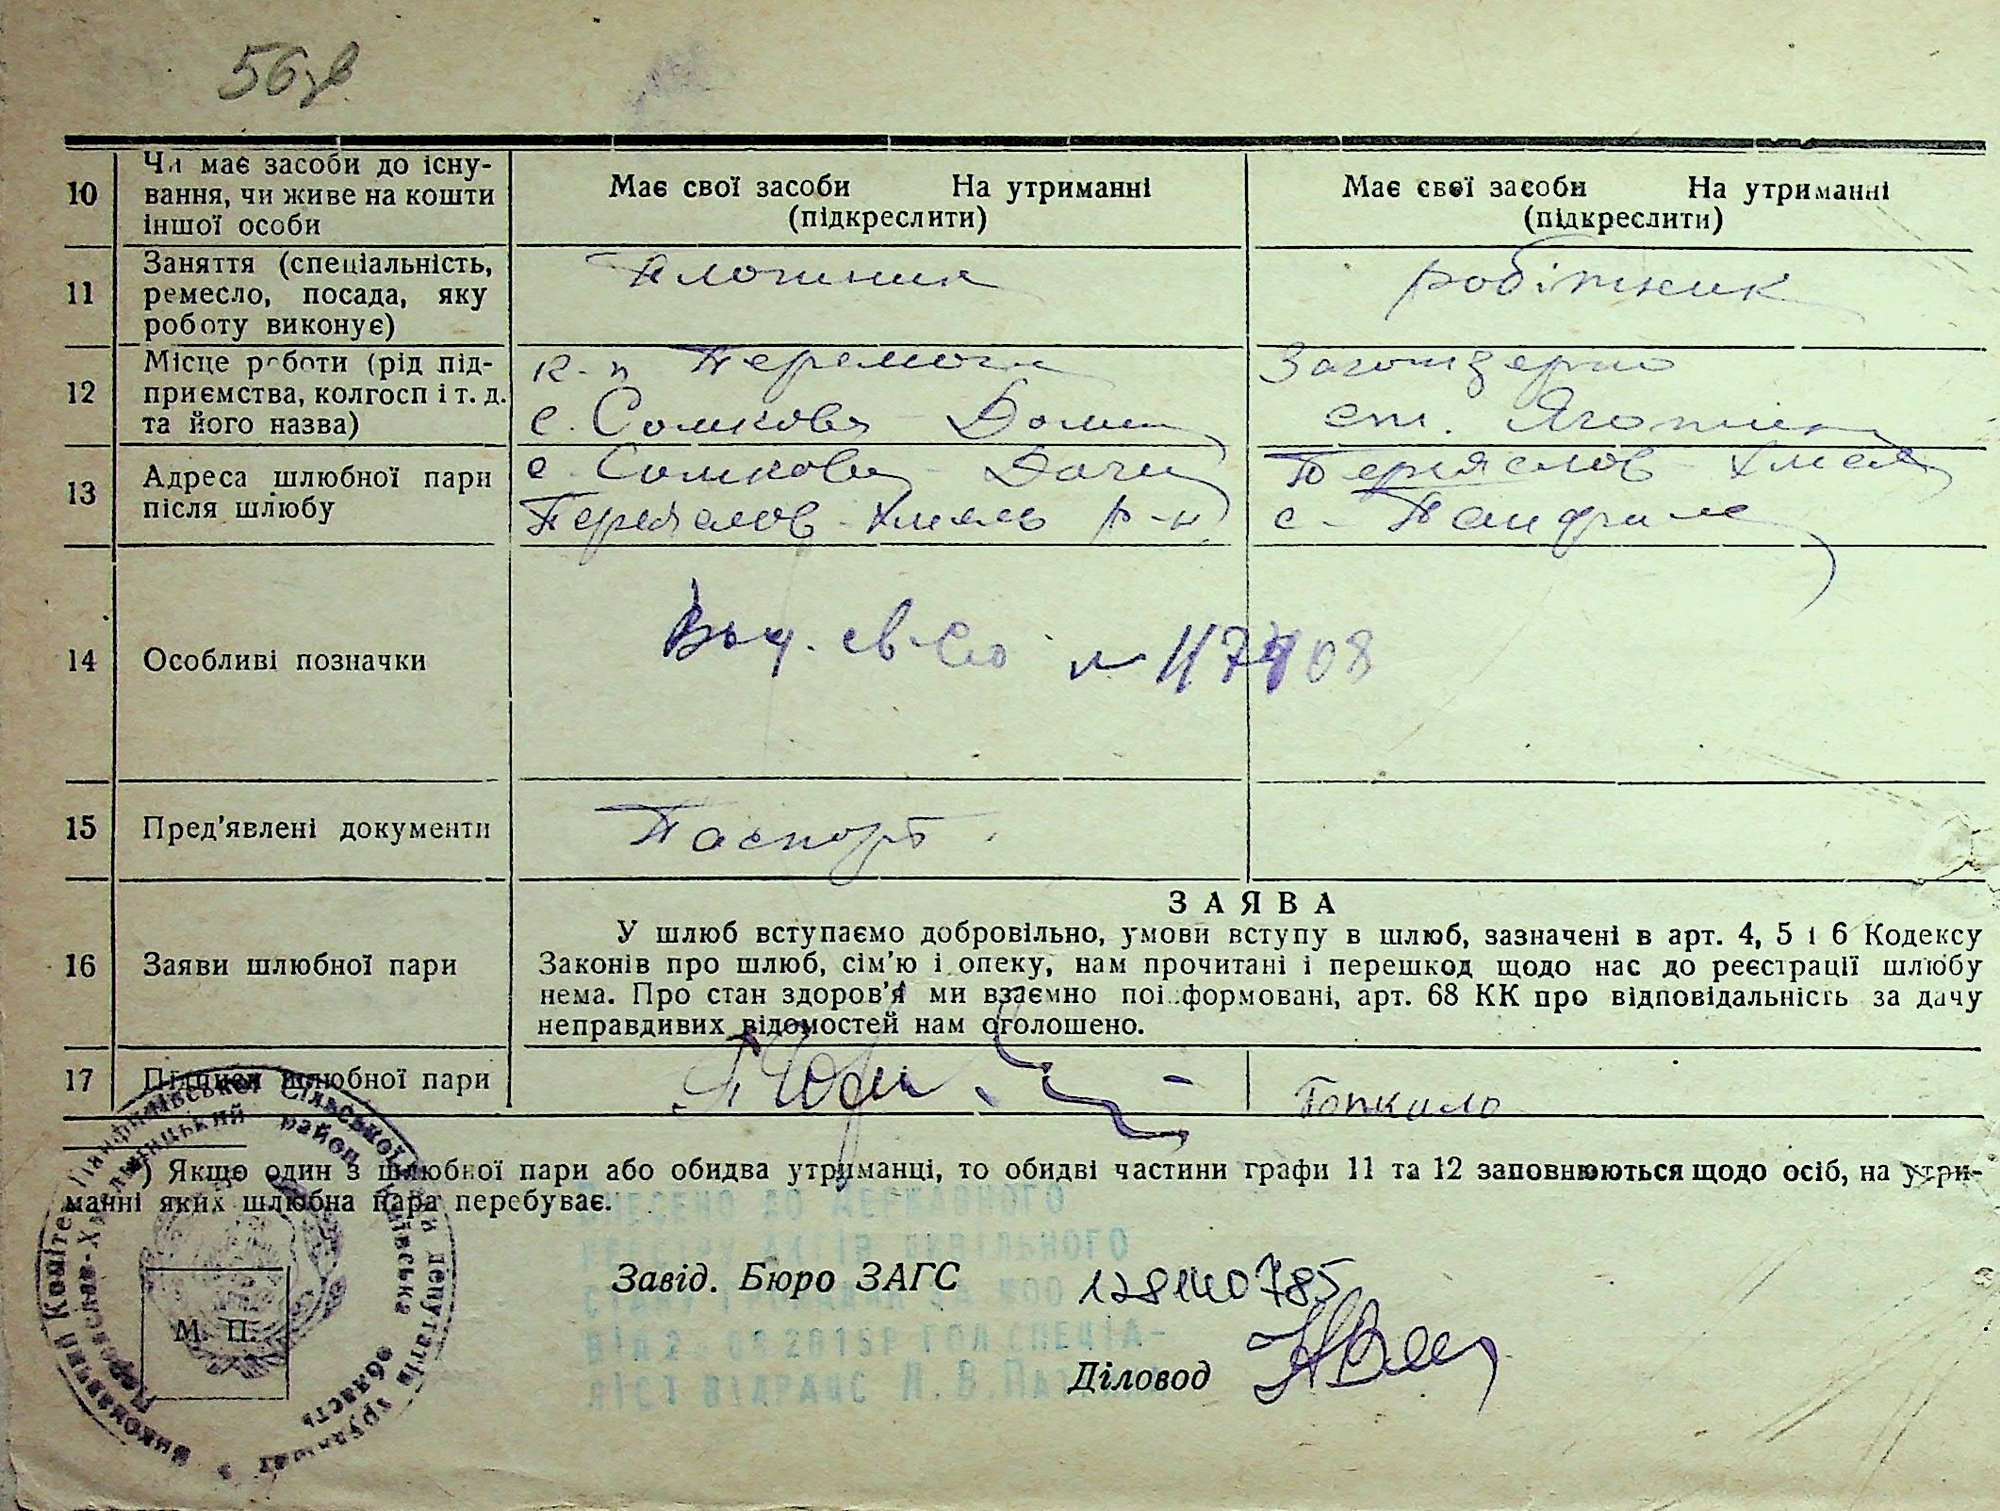 56зв
10
Чи має засоби до існу-
вання, чи живе на кошти
іншої особи
Має свої засоби На утриманні
(підкреслити)
Має свої засоби На утриманні
(підкреслити)
11
Заняття (спеціальність,
ремесло, посада, яку
роботу виконує)
робітник
12
Місце роботи (рід під-
приємства, колгосп і т. д.
та його назва)
к-п Перемога
с. Сомкова Долина
Заготзерно
ст. Яготин
13
Адреса шлюбної пари
після шлюбу
с. Сомкова
Переяслов-Хмель р-н
Переяслов-Хмел
с-
14
Особливі позначки
Выд. св-во №
15
Пред'явлені документи
Паспорт
16
Заяви шлюбної пари
ЗАЯВА
У шлюб вступаємо добровільно, умови вступу в шлюб, зазначені в арт. 4, 5 і 6 Кодексу
Законів про шлюб, сім'ю і опеку, нам прочитані і перешкод щодо нас до реєстрації шлюбу
нема. Про стан здоров'я ми взаємно поінформовані, арт. 68 КК про відповідальність за дачу
неправдивих відомостей нам оголошено.
17
Підписи шлюбної пари
) Якщо один з шлюбної пари або обидва утриманці, то обидві частини графи 11 та 12 заповнюються щодо осіб, на утри-
манні яких шлюбна пара перебуває.
Внесено до державного
цивільного
Завід. Бюро ЗАГС
М. П.
Діловод
Виконавчий Комітет Панфилівської Сільської Ради депутатів трудящих
Переяслав-Хмельницький район Київська область